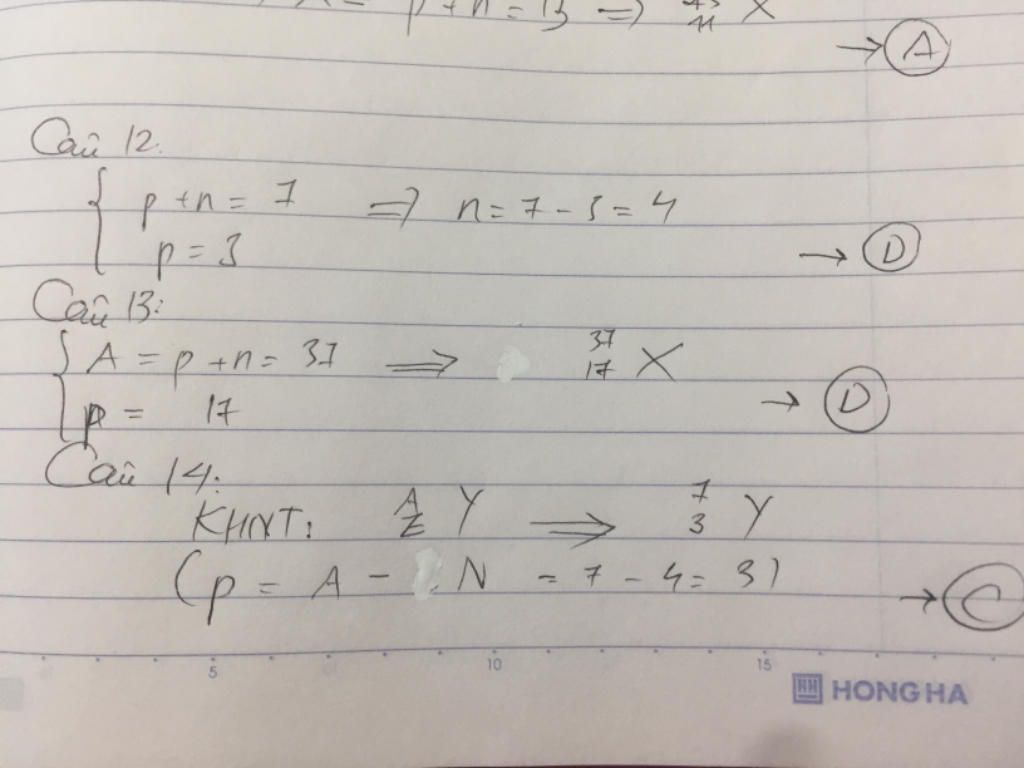 p + n = 13 ⇒ X
→ A
Câu 12.
{ p + n = 7 ⇒ n = 7 - 3 = 4
p = 3 → D
Câu 13:
{ A = p + n = 37 ⇒ ³⁷₁₇ X
p = 17 → D
Câu 14:
KHNT: ᴬ_Z Y ⇒ ⁷₃ Y
(p = A - N = 7 - 4 = 3)
→ C
5 10 15
HH HONG HA